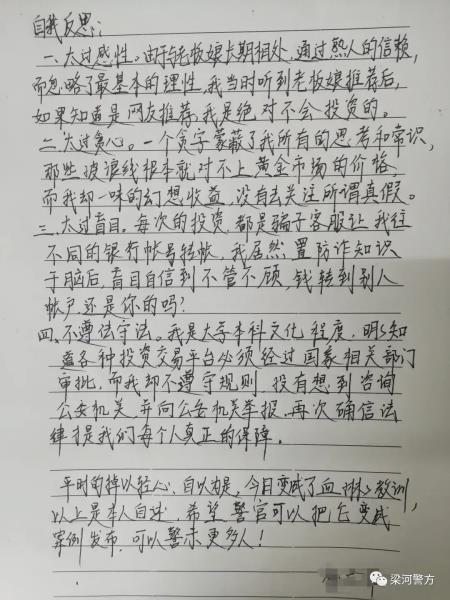 自我反思：
一、太过感性。由于与老板娘长期相处，通过熟人的信赖，
而忽略了最基本的理性，我当时听到老板娘推荐后，
如果知道是网友推荐，我是绝对不会投资的。
二、太过贪心。一个贪字蒙蔽了我所有的思考和常识，
那些波浪线根本就对不上黄金市场的价格，
而我却一味的幻想收益，没有去关注所谓真假。
三、太过盲目。每次的投资，都是骗子客服让我往
不同的银行帐号转帐，我居然置防诈知识
于脑后，盲目自信到不管不顾，钱转到别人
帐户还是你的吗？
四、不遵法守法。我是大学本科文化程度，明明知
道各种投资交易平台必须经过国家相关部门
审批，而我却不遵守规则，没有想到咨询
公安机关，并向公安机关举报，再次确信法
律才是我们每个人真正的保障。
平时的掉以轻心，自以为是，今日变成了血淋淋教训，
以上是本人自述，希望警官可以把它变成
案例发布，可以警示更多人！
梁河警方